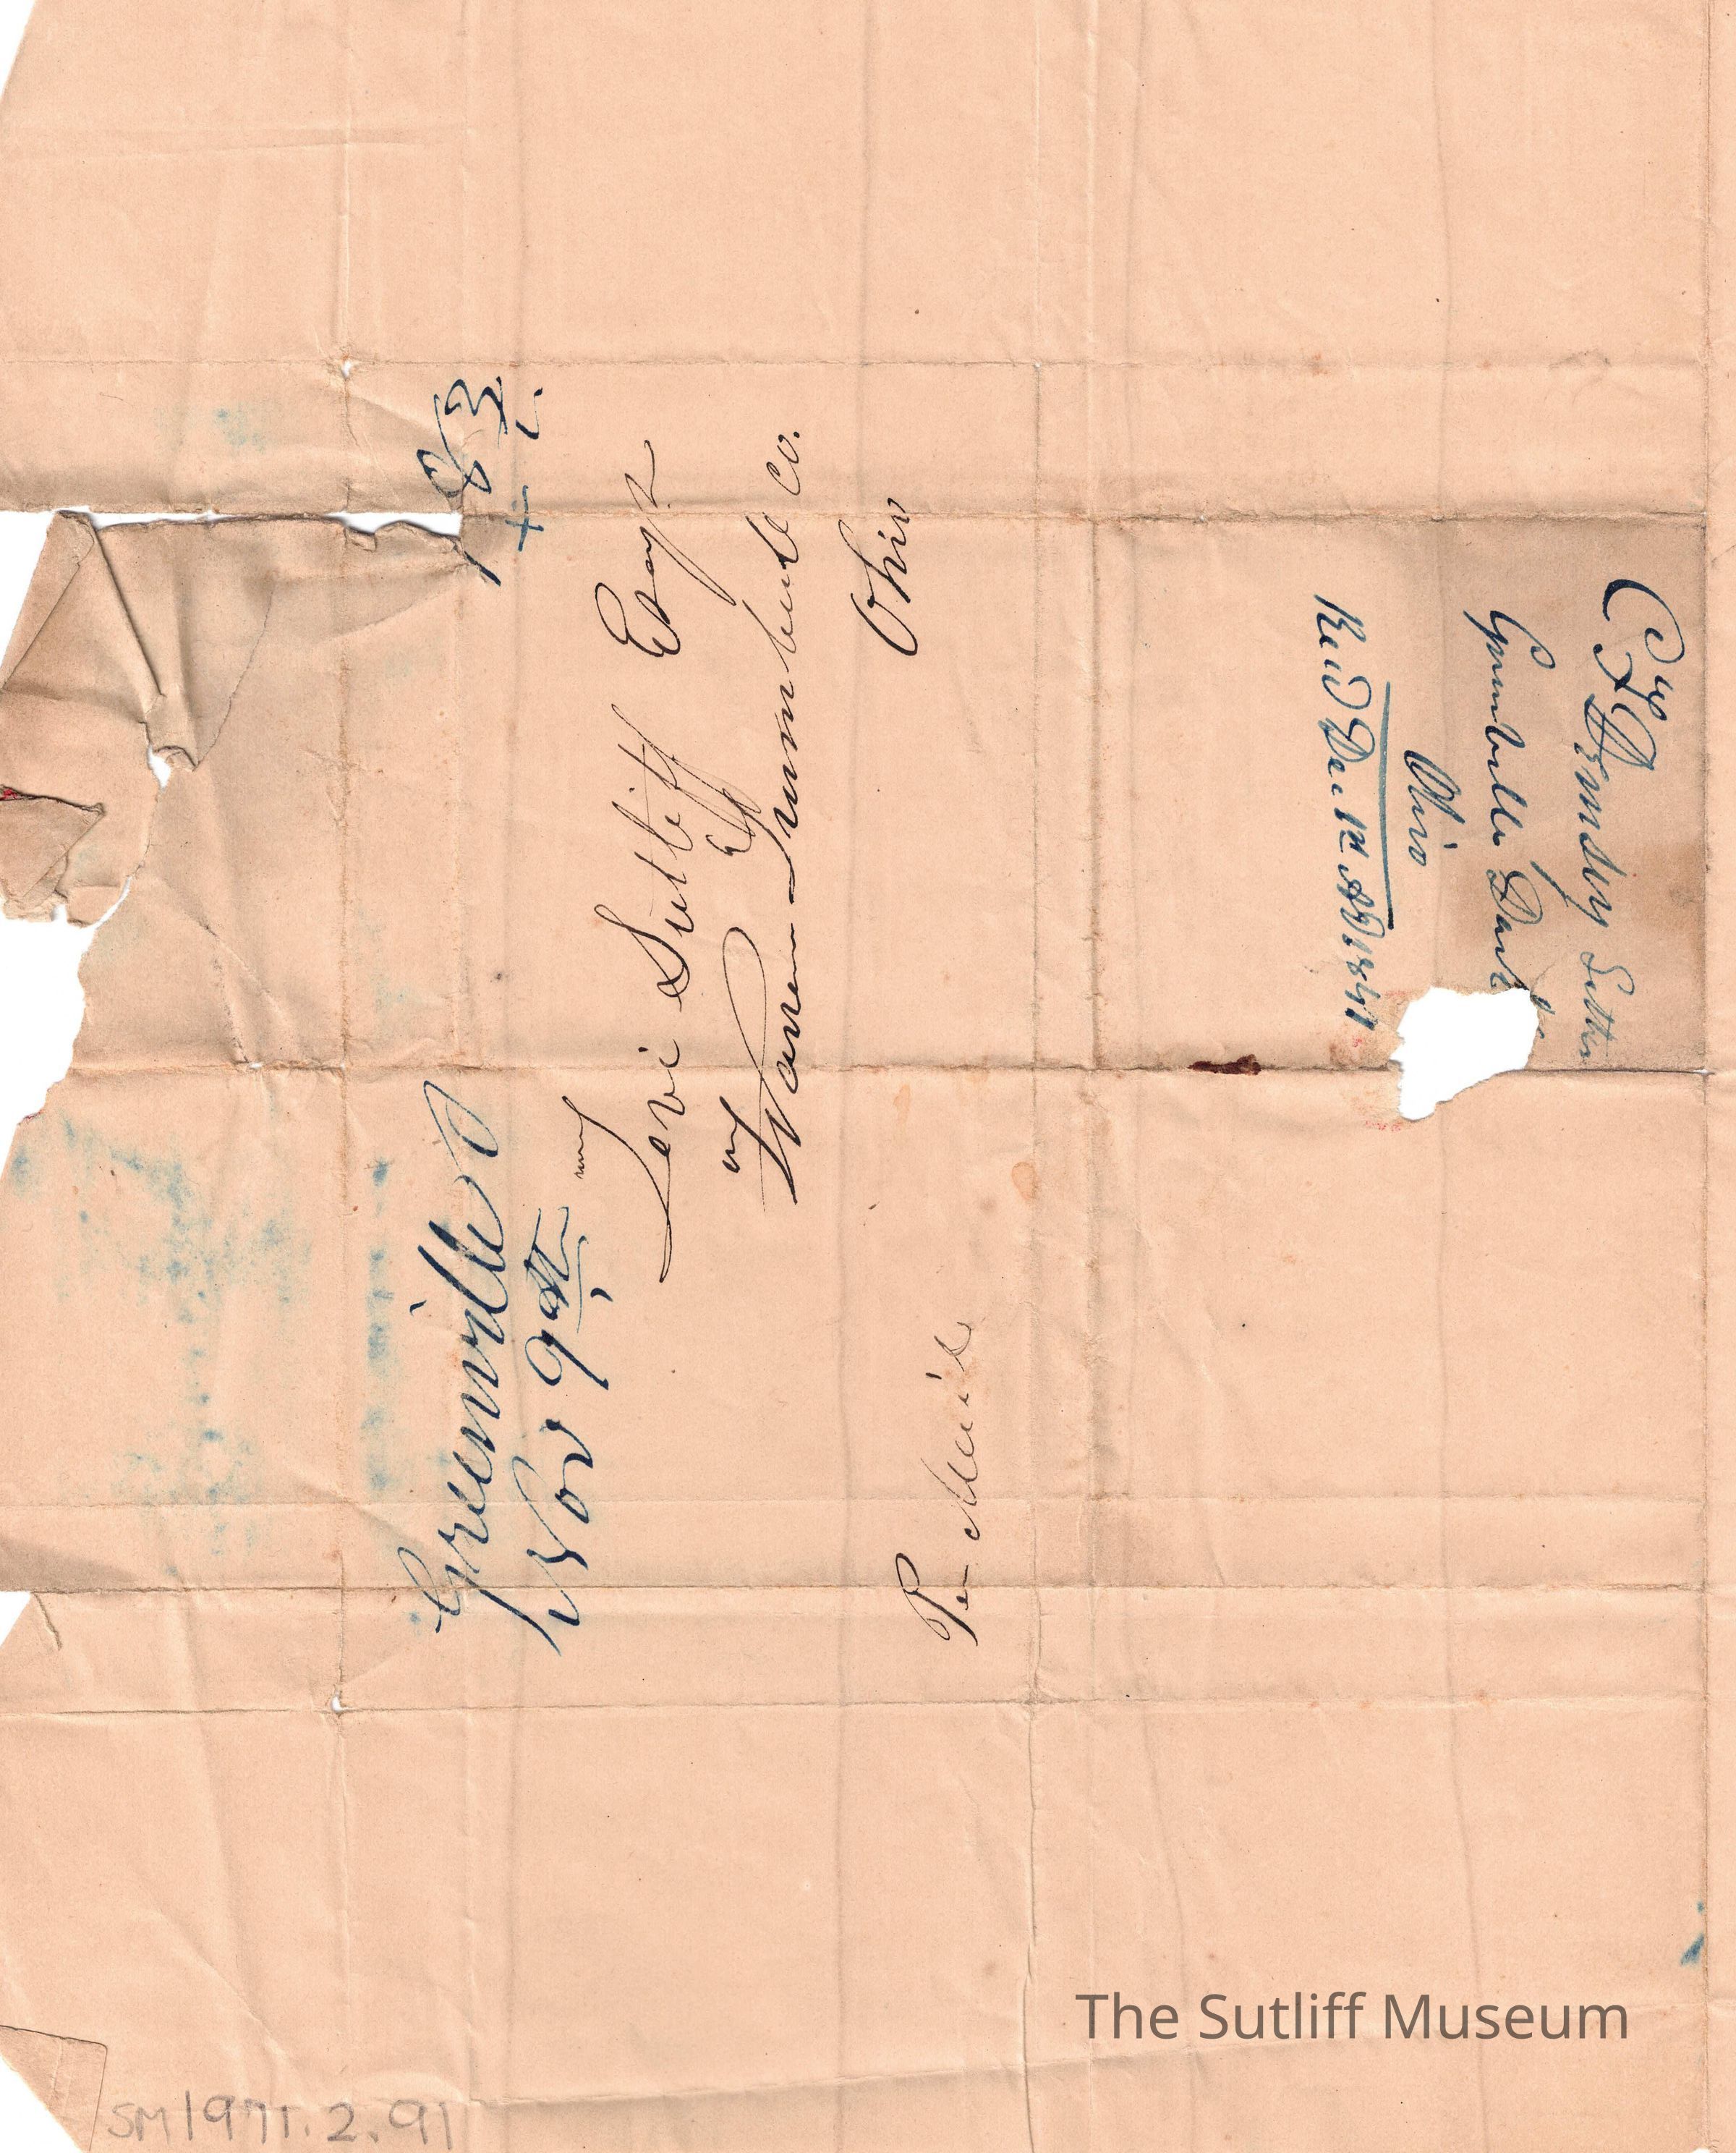 Greenville O
Nov 9th
18 3/4
Levi Sutliff Esqr
Warren Trumbull Co.
Ohio
Per Mail
Demsey Letter
Greenville Dark
Ohio
Recd Dec 1st AD 1841
The Sutliff Museum
SM1971.2.91